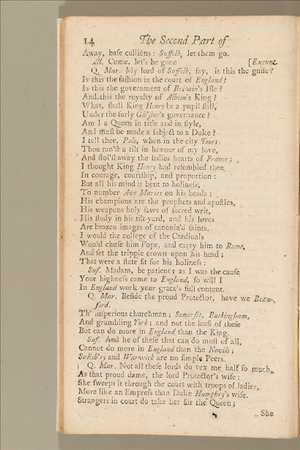 14 The Second Part of
Away, base cullions: Suffolk, let them go.
All. Come, let's be gone [Exeunt.
Q. Mar. My lord of Suffolk, say, is this the guise?
Is this the fashion in the court of England?
Is this the government of Britain's Isle?
And this the royalty of Albion's King?
What, shall King Henry be a pupil still,
Under the surly Glo'ster's governance?
Am I a Queen in title and in style,
And must be made a subject to a Duke?
I tell thee, Pole, when in the city Tours
Thou ran'st a tilt in honour of my love,
And stol'st away the ladies hearts of France;
I thought King Henry had resembled thee,
In courage, courtship, and proportion:
But all his mind is bent to holiness,
To number Ave Maries on his beads;
His champions are the prophets and apostles,
His weapons holy saws of sacred writ,
His study in his tilt-yard, and his loves
Are brazen images of canoniz'd saints.
I would the college of the Cardinals
Would chuse him Pope, and carry him to Rome,
And set the tripple crown upon his head;
That were a state fit for his holiness:
Suf. Madam, be patient; as I was the cause
Your highness came to England, so will I
In England work your grace's full content.
Q. Mar. Beside the proud Protector, have we Beau-
ford.
Th' imperious churchman; Somerset, Buckingham,
And grumbling York; and not the least of these
But can do more in England than the King.
Suf. And he of these that can do most of all,
Cannot do more in England than the Nevils;
Salisb'ry and Warwick are no simple Peers.
Q. Mar. Not all these lords do vex me half so much
As that proud dame, the lord Protector's wife:
She sweeps it through the court with troops of ladies,
More like an Empress than Duke Humphry's wife.
Strangers in court do take her for the Queen;
She